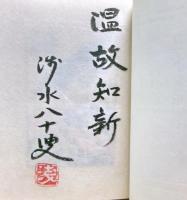 温故知新
沙水八十叟